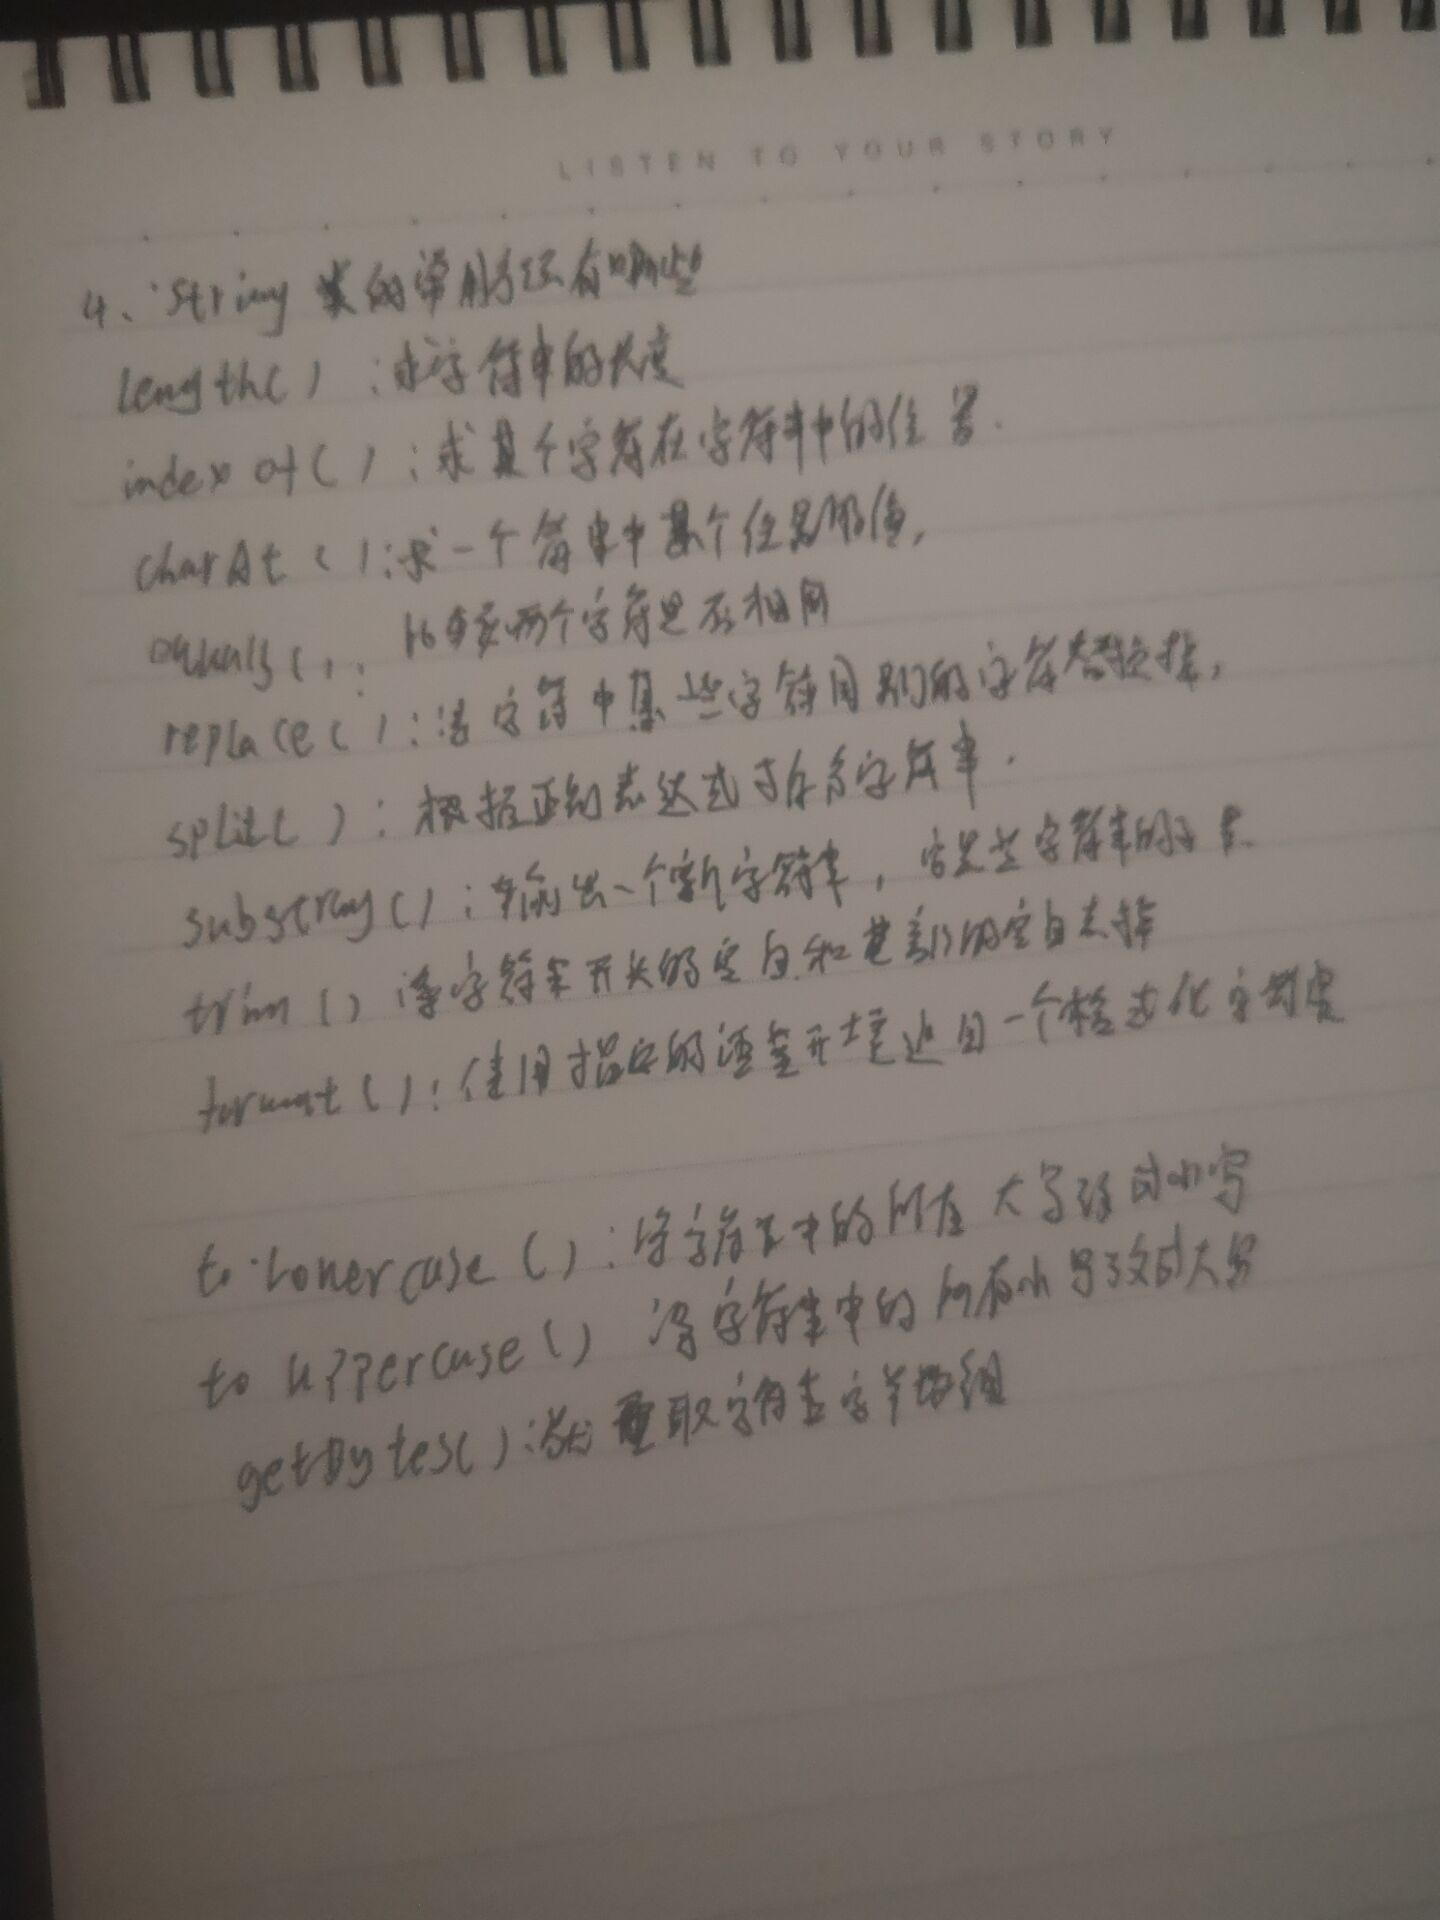 LISTEN TO YOUR STORY
4、String 类的常用方法有哪些
length()：求字符串的长度
indexof()：求某个字符在字符串中的位置.
charAt()：求一个符串中某个位置的值,
equals()：比较两个字符是否相同
replace()：将字符中某些字符用别的字符替换掉,
split()：根据正则表达式拆分字符串.
substring()：输出一个新字符串，它是此字符串的子串.
trim() 将字符串开头的空白和尾部的空白去掉
format()：使用指定的语言环境返回一个格式化字符串
to Lowercase ()：将字符串中的所有大写改成小写
to uppercase() 将字符串中的所有小写改成大写
getBytes()：获取字符串字节数组